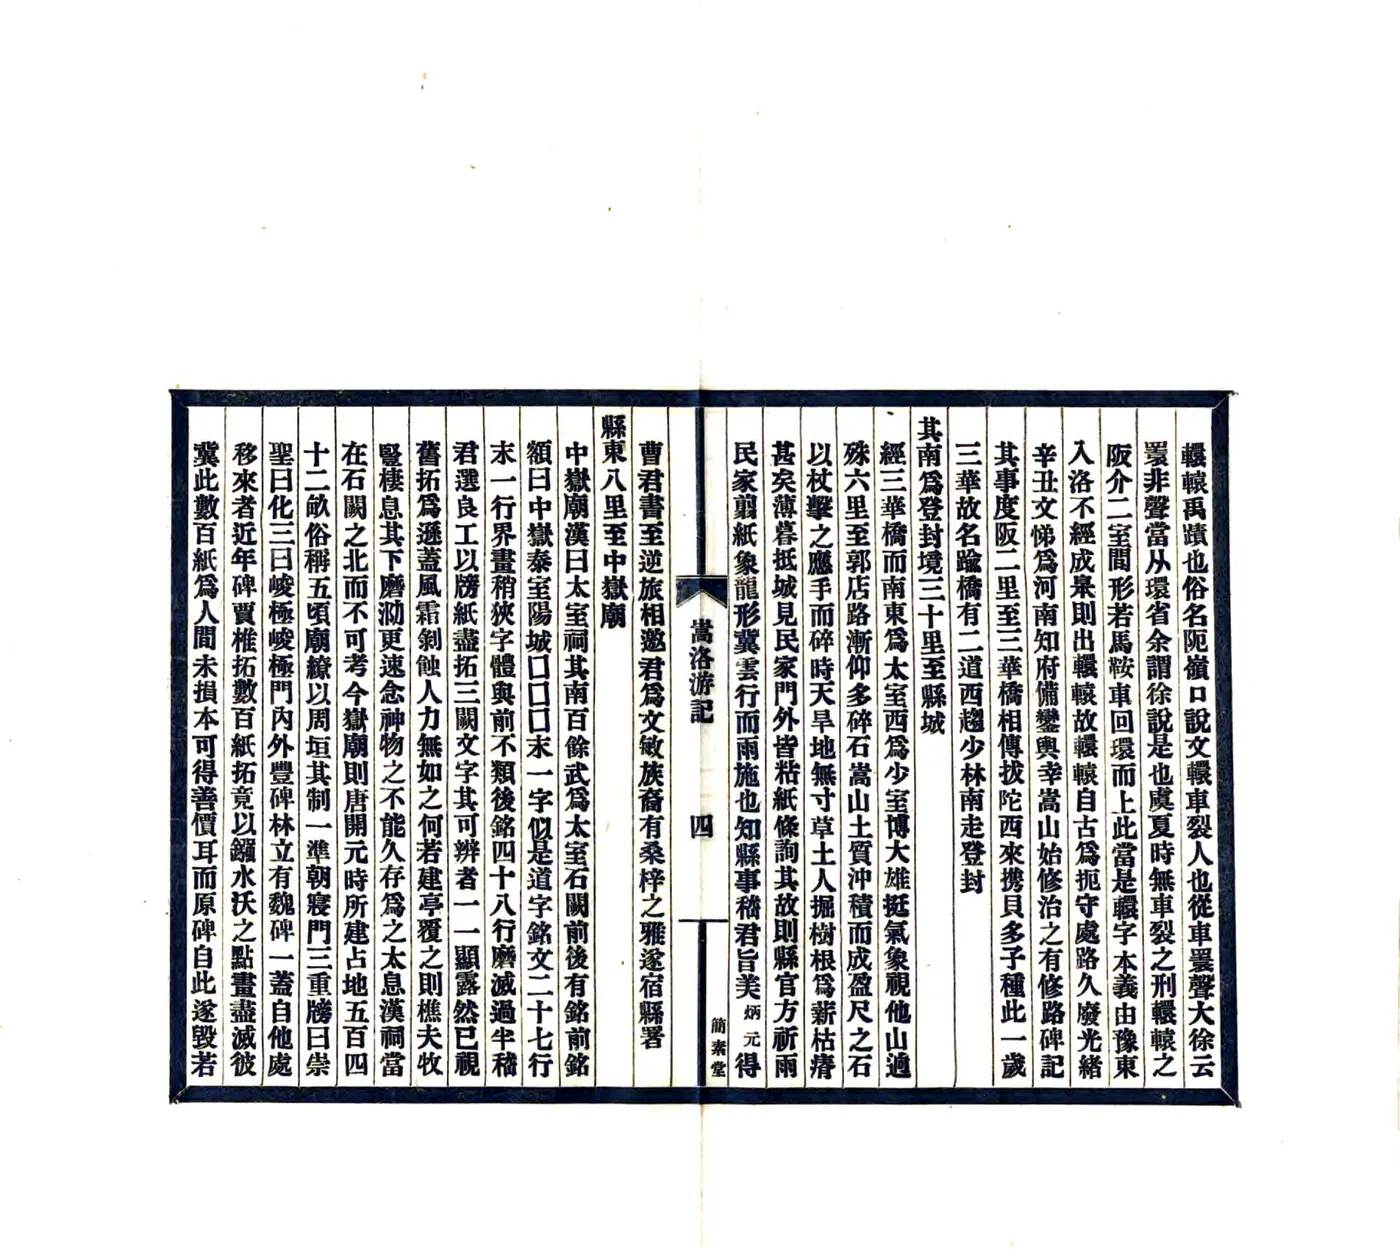 轘轅禹蹟也俗名阨嶺口說文轘車裂人也從車睘聲大徐云
睘非聲當从環省余謂徐說是也虞夏時無車裂之刑轘轅之
阪介二室間形若馬鞍車回環而上此當是轘字本義由豫東
入洛不經成臯則出轘轅故轘轅自古爲扼守處路久廢光緒
辛丑文悌爲河南知府備鑾輿幸嵩山始修治之有修路碑記
其事度阪二里至三華橋相傳拔陀西來携貝多子種此一歲
三華故名踰橋有二道西趨少林南走登封
其南爲登封境三十里至縣城
經三華橋而南東爲太室西爲少室博大雄挺氣象視他山逈
殊六里至郭店路漸仰多碎石嵩山土質沖積而成盈尺之石
以杖擊之應手而碎時天旱地無寸草土人掘樹根爲薪枯瘠
甚矣薄暮抵城見民家門外皆粘紙條詢其故則縣官方祈雨
民家剪紙象龍形冀雲行而雨施也知縣事嵇君旨美炳元得
簡素堂
嵩洛游記
四
曹君書至逆旅相邀君爲文敏族裔有桑梓之雅遂宿縣署
縣東八里至中嶽廟
中嶽廟漢曰太室祠其南百餘武爲太室石闕前後有銘前銘
額曰中嶽泰室陽城囗囗囗末一字似是道字銘文二十七行
末一行界畫稍狹字體與前不類後銘四十八行磨滅過半嵇
君選良工以牓紙盡拓三闕文字其可辨者一一顯露然已視
舊拓爲遜蓋風霜剝蝕人力無如之何若建亭覆之則樵夫牧
豎棲息其下磨泐更速念神物之不能久存爲之太息漢祠當
在石闕之北而不可考今嶽廟則唐開元時所建占地五百四
十二畝俗稱五頃廟繚以周垣其制一準朝寢門三重牓曰崇
聖曰化三曰峻極峻極門內外豐碑林立有魏碑一蓋自他處
移來者近年碑賈椎拓數百紙拓竟以鏹水沃之點畫盡滅彼
冀此數百紙爲人間未損本可得善價耳而原碑自此遂毀若